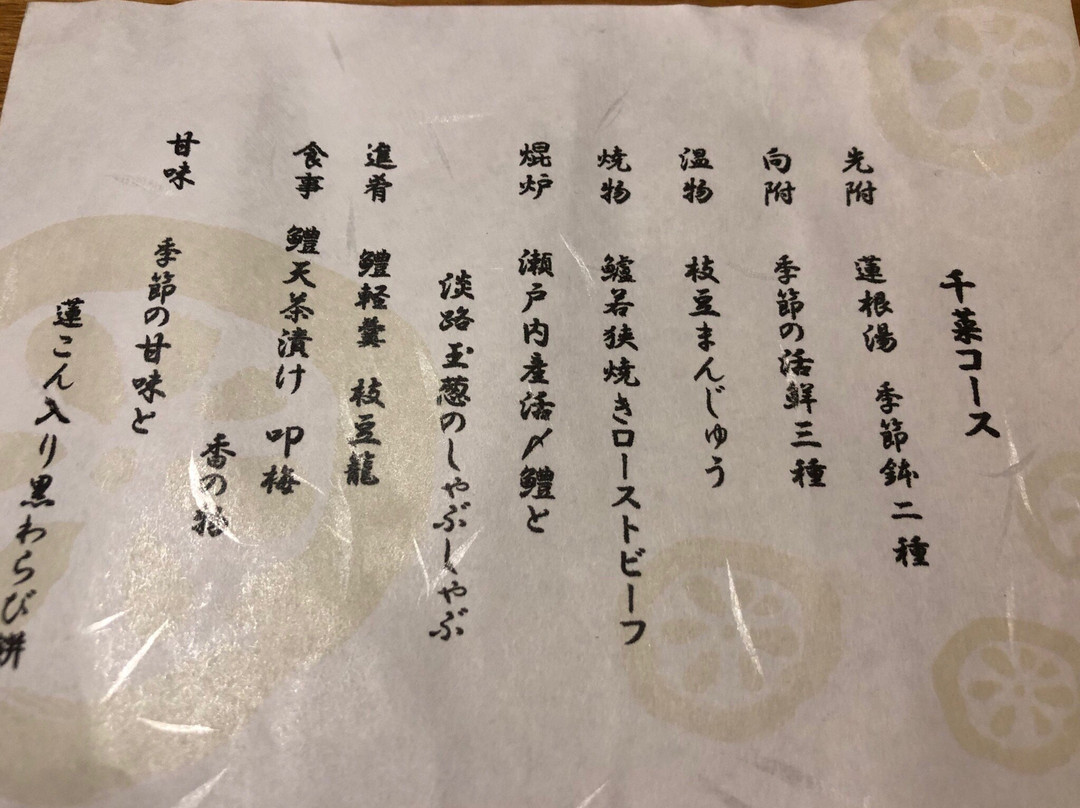 千菜コース
先附 蓮根湯 季節鉢二種
向附 季節の活鮮三種
温物 枝豆まんじゅう
焼物 鱸若狭焼きローストビーフ
焜炉 瀬戸内産活〆鱧と
淡路玉葱のしゃぶしゃぶ
進肴 鱧軽羹 枝豆籠
食事 鱧天茶漬け 叩梅
香の物
甘味 季節の甘味と
蓮こん入り黒わらび餅